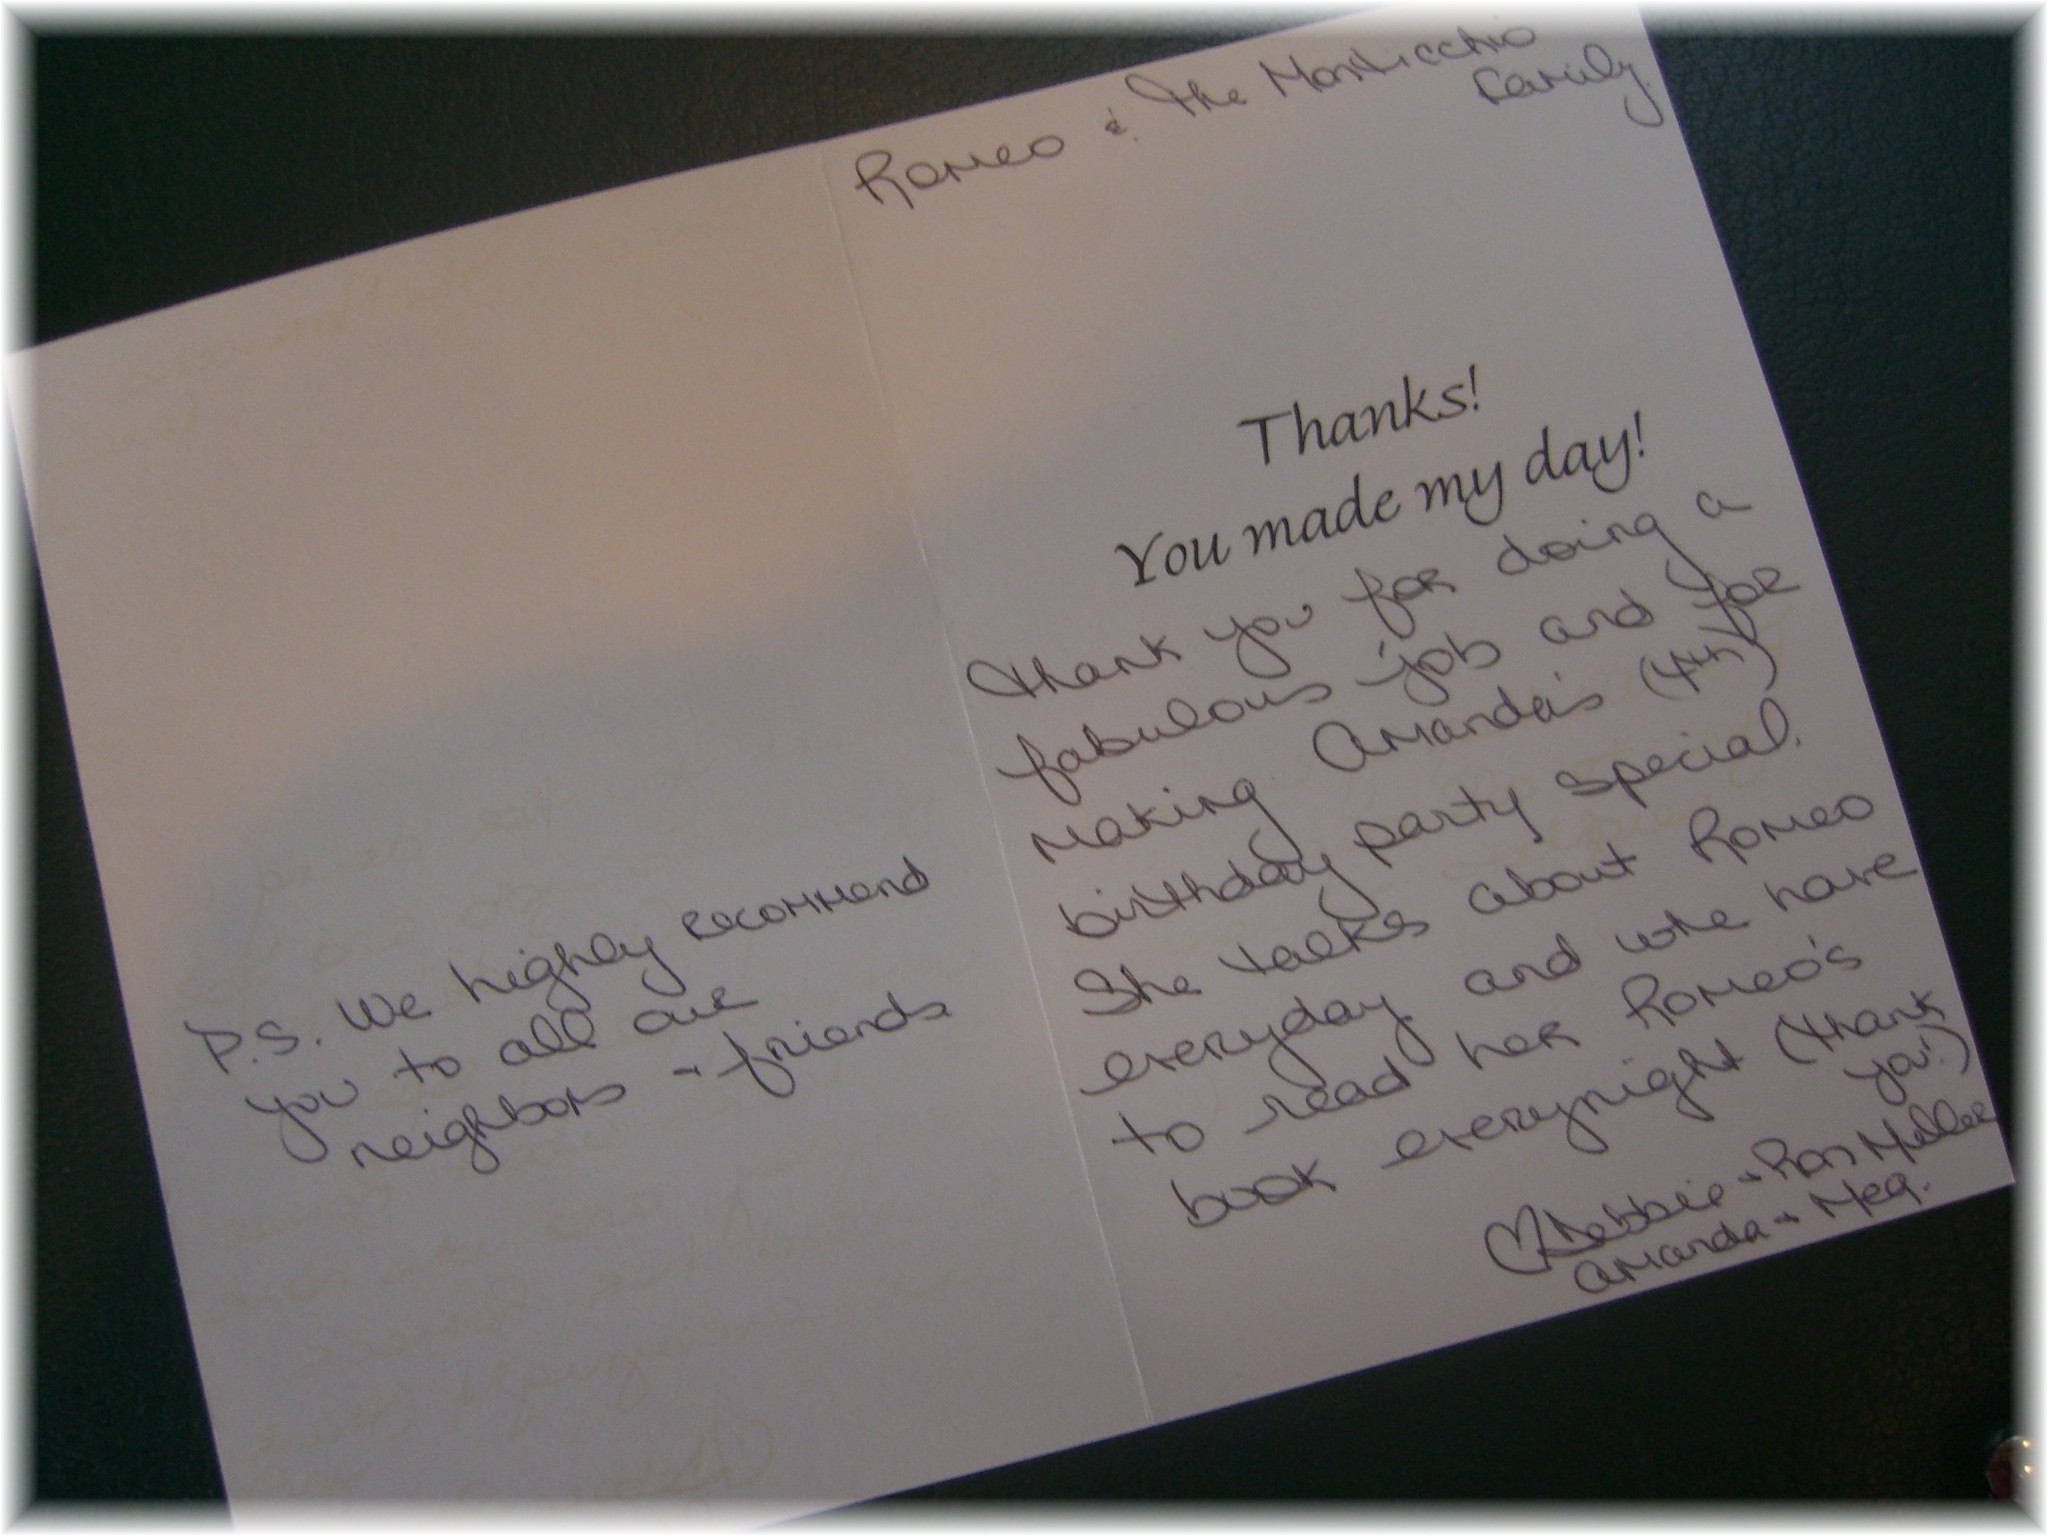 P.S. We highly recommend
you to all our
neighbors + friends
Romeo & the Monticchio
family.
Thanks!
You made my day!
Thank you for doing a
fabulous job and for
making Amanda's (4th)
birthday party special.
She talks about Romeo
everyday and we have
to read her Romeo's
book everynight (thank
you!)
Debbie + Ron
Amanda + Meg.